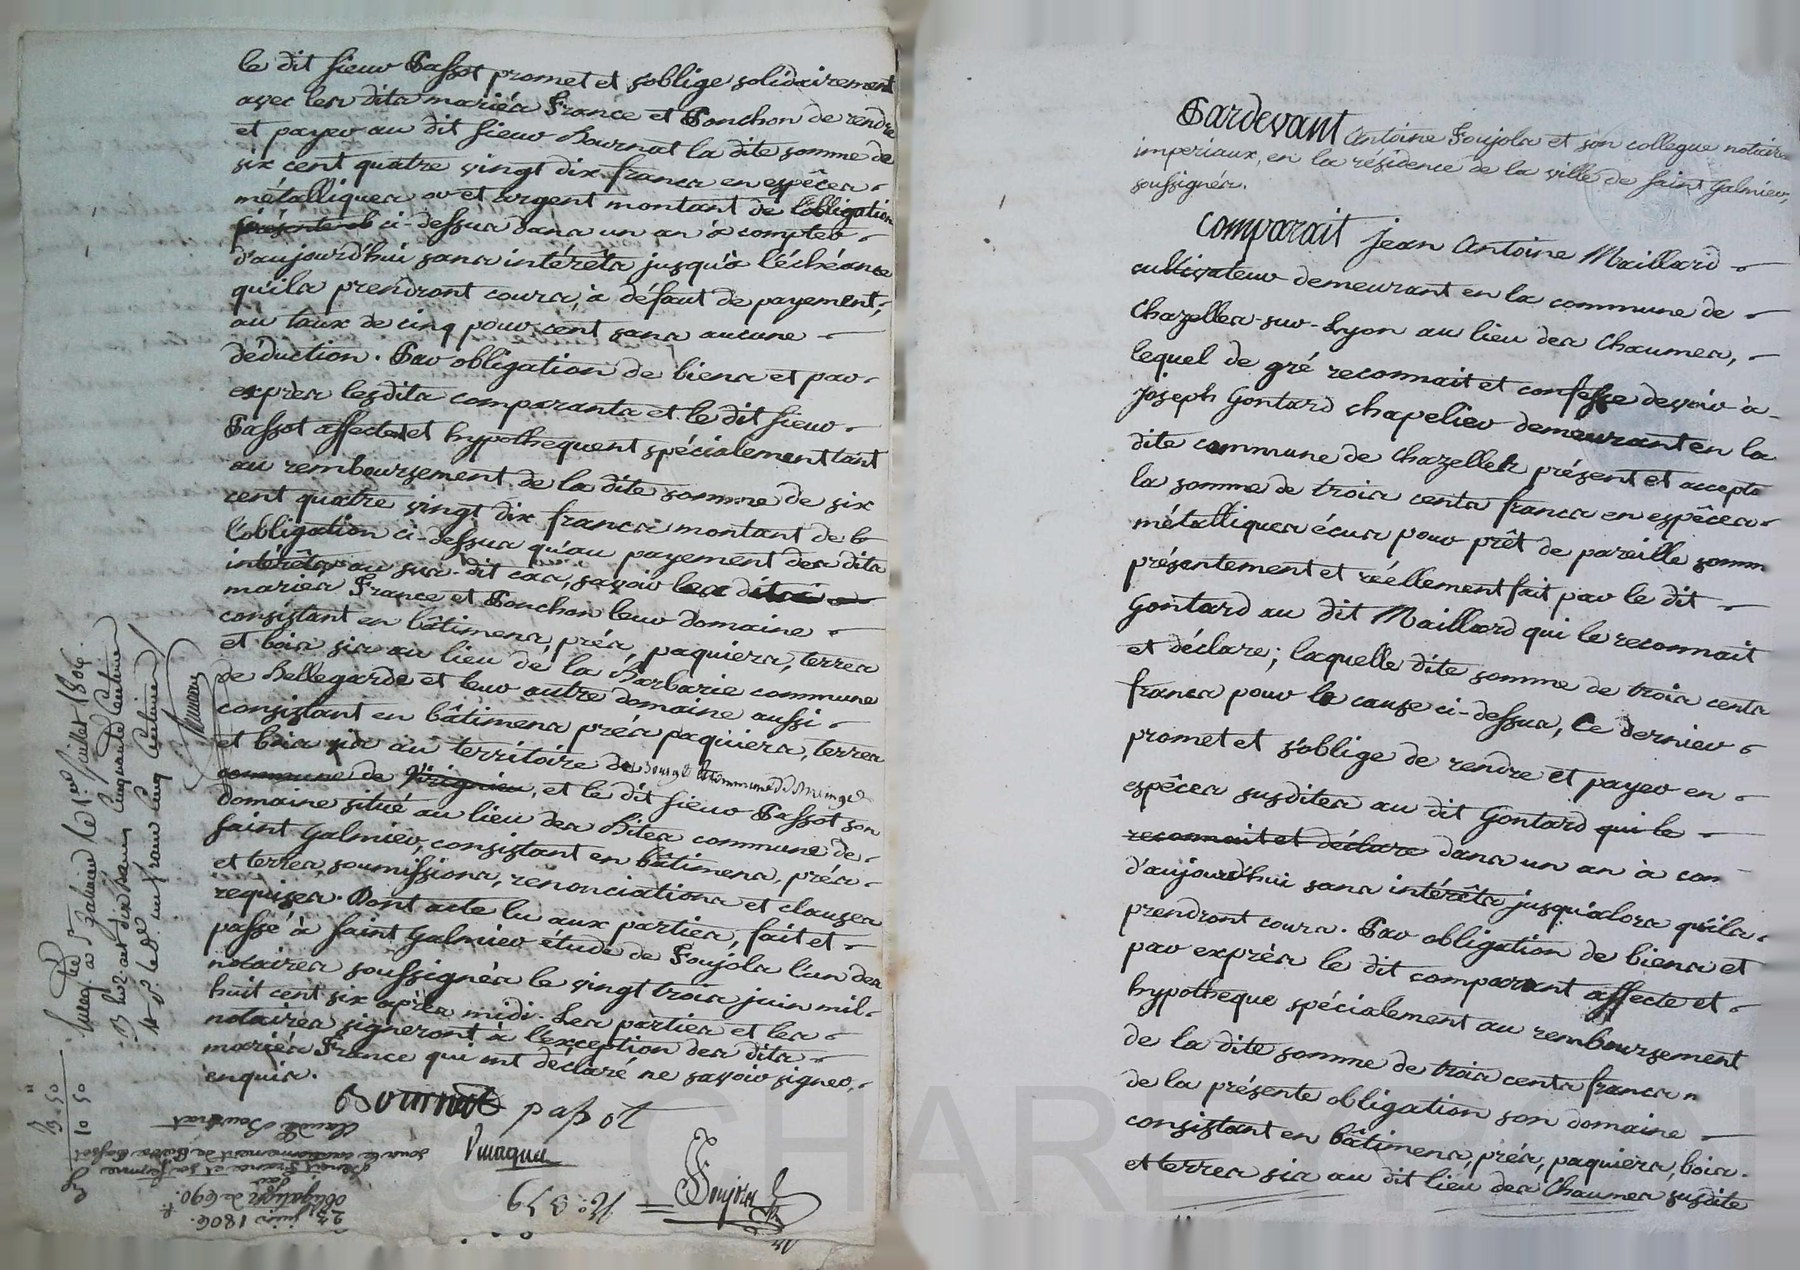 le dit sieur Passot promet et s'oblige solidairement
avec les dits mariés France et Ponchon de rendre
et payer au dit sieur Bournat la dite somme de
six cent quatre vingt dix francs en espêces
métalliques or et argent montant de l'obligation
présente ci-dessus dans un an à compter
d'aujourd'hui sans intérêts jusqu'à l'échéance
qu'ils prendront cours, à défaut de payement,
au taux de cinq pour cent sans aucune
déduction. Par obligation de biens et par
exprès lesdits comparants et le dit sieur
Passot affectent et hypothequent spécialement tant
au remboursement de la dite somme de six
cent quatre vingt dix francs montant de
l'obligation ci-dessus qu'au payement des dits
intérêts au sus-dit cas, savoir les dits
mariés France et Ponchon leur domaine
consistant en bâtimens, prés, paquiers, terres
et bois sis au lieu de la Barbarie commune
de Bellegarde et leur autre domaine aussi
consistant en bâtimens prés paquiers, terres
et bois sis au territoire de commune de
commune de, et le dit sieur Passot son
domaine situé au lieu des commune de
saint Galmier, consistant en bâtimens, prés
et terres, soumissions, renonciations et clauses
requises. Dont acte lu aux parties, fait et
passé à saint Galmier étude de Foujols l'un des
notaires soussignés le vingt trois juin mil
huit cent six après midi. Les parties et les
notaires signeront à l'exception des dits
mariés France qui ont déclaré ne savoir signer,
enquis.
Bournat passot
Foujols
N.° 339
le 1er Juillet 1806.
3. 50
10 50
23 juin 1806.
obligation de 690. f.
par
France et sa femme
Claude Bournat
Pardevant Antoine Foujols et son collegue notaires
imperiaux, en la résidence de la ville de saint Galmier,
soussignés.
Comparait Jean Antoine Maillard
cultivateur demeurant en la commune de
Chazelles-sur-Lyon au lieu des Chaumes,
lequel de gré reconnait et confesse devoir à
Joseph Gontard chapelier demeurant en la
dite commune de Chazelles présent et accepta
la somme de trois cents francs en espêces
métalliques écus pour prêt de pareille somm
présentement et réellement fait par le dit
Gontard au dit Maillard qui le reconnait
et déclare; laquelle dite somme de trois cents
francs pour la cause ci-dessus, Ce dernier
promet et s'oblige de rendre et payer en
espêces susdites au dit Gontard qui le
reconnait et déclare dans un an à com
d'aujourd'hui sans intérêts jusqu'alors qu'ils
prendront cours. Par obligation de biens et
par exprès le dit comparant affecte et
hypotheque spécialement au remboursement
de la dite somme de trois cents francs
de la présente obligation son domaine
consistant en bâtimens, prés, paquiers, bois
et terres sis au dit lieu des Chaumes susdite
CHARLYRON